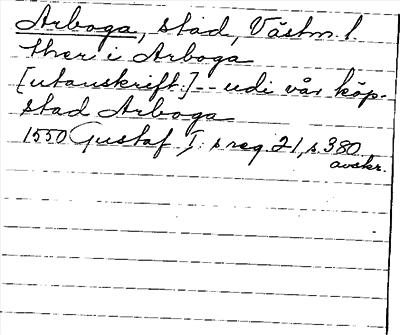 Arboga, stad, Västm. l.
ther i Arboga
[utanskrift:] -- udi vår köp-
stad Arboga
1550 Gustaf I:s reg. 21, s. 380
avskr.